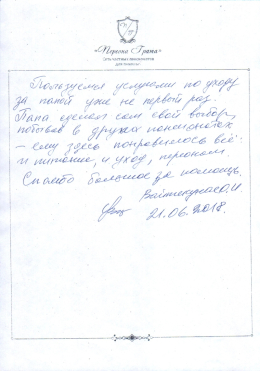 «Первая Грама»
Пользуемся услугами по уходу
за папой уже не первый раз.
Папа сделал сам свой выбор,
побывав в других пансионатах
– ему здесь понравилось всё:
и питание, и уход, персонал.
Спасибо большое за помощь.
21.06.2018.